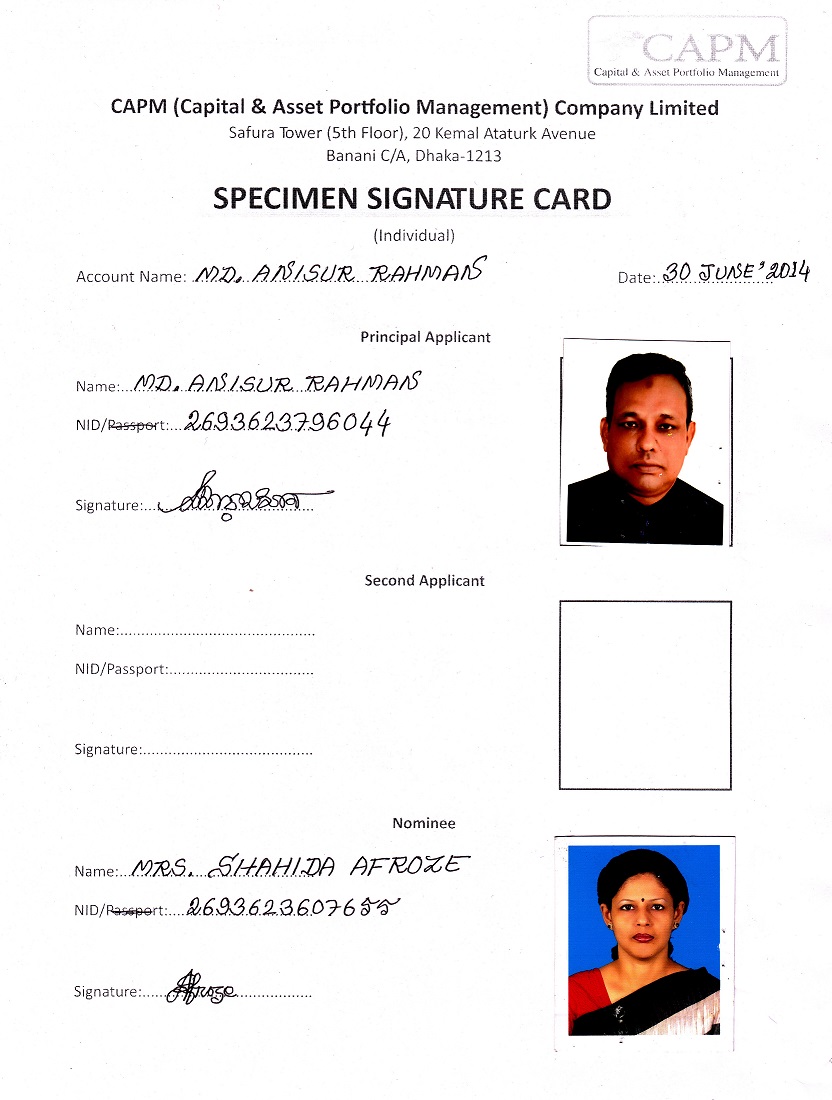 CAPM
Capital & Asset Portfolio Management
CAPM (Capital & Asset Portfolio Management) Company Limited
Safura Tower (5th Floor), 20 Kemal Ataturk Avenue
Banani C/A, Dhaka-1213
SPECIMEN SIGNATURE CARD
(Individual)
Account Name: MD. ANISUR RAHMAN Date: 30 JUNE'2014
Principal Applicant
Name: MD. ANISUR RAHMAN
NID/Passport: 2693623796044
Signature:
Second Applicant
Name:
NID/Passport:
Signature:
Nominee
Name: MRS. SHAHIDA AFROZE
NID/Passport: 26936236076
Signature: Afroze